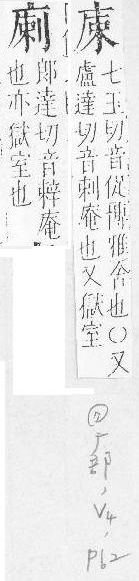 庲
七玉切音促博雅舍也○又
盧達切音剌庵也又獄室
廍
郎達切音辢庵
也亦獄室也
②广部，V4，
P62